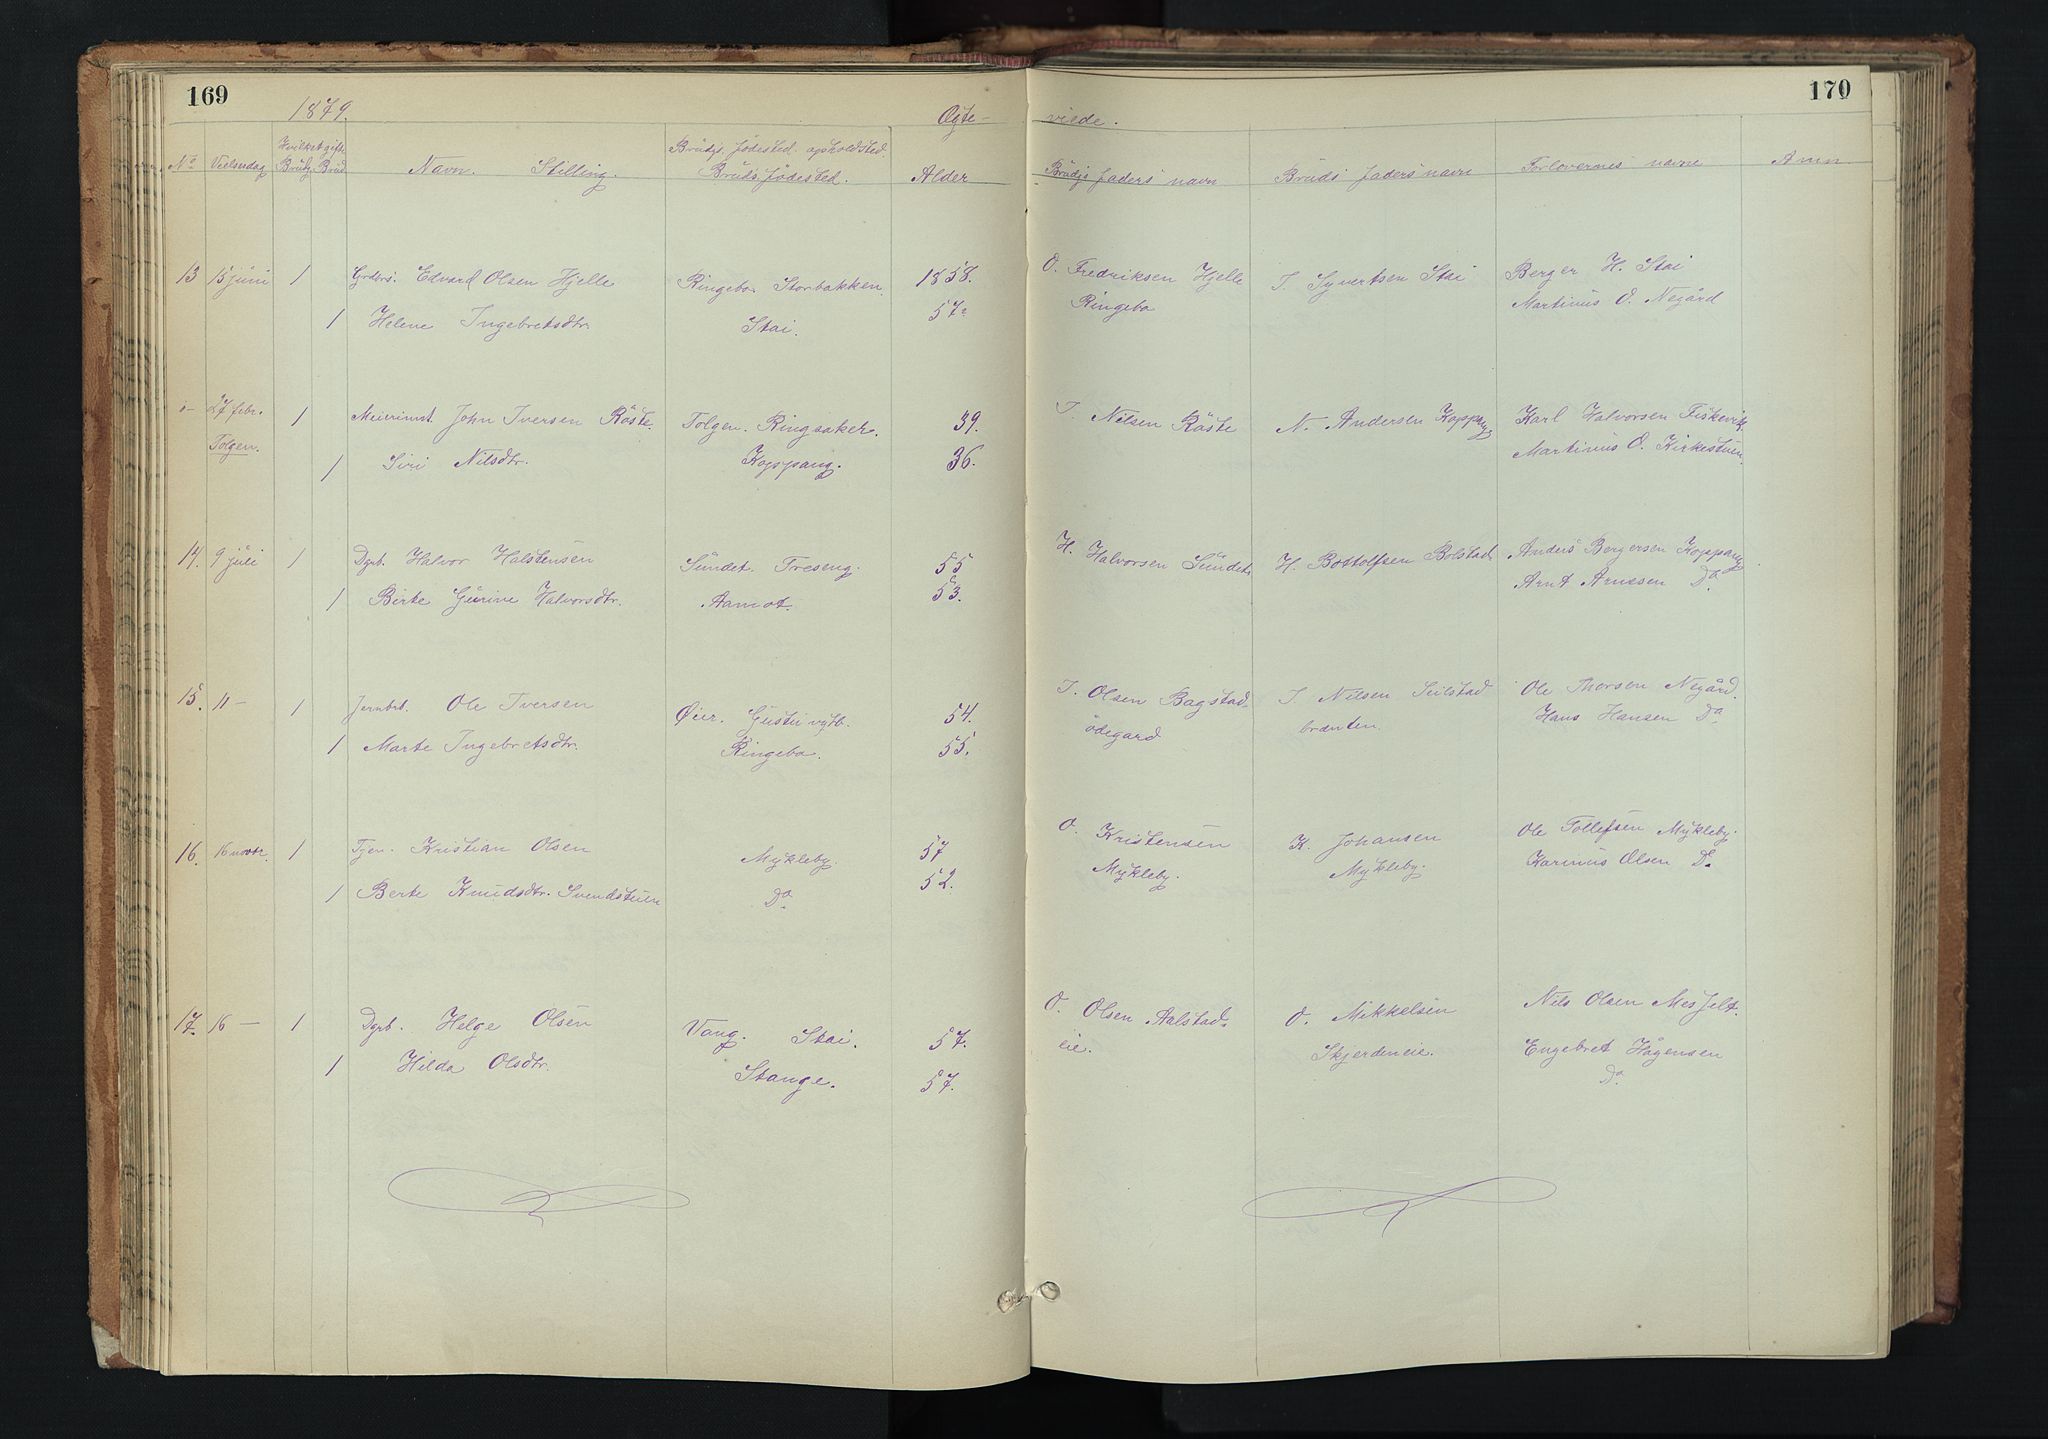 169
1879.
Ægte-
viede.
170
No Vielsesdag Hvilket gift Brudg. Brud Navn. Stilling. Brudgs. fødested. opholdsted. Bruds fødested. Alder
Brudgs faders navn Bruds faders navn Forlovernes navne Anm.
13 15 juni 1 Grders. Edvard Olsen Hjelle Ringebo. Storbakken. 1858. O. Fredriksen Hjelle I. Syvertsen Stai Berger H. Stai
1 Helene Ingebretsdtr. Stai. 57. Ringebo Martinus O. Negård
0- 27 febr. 1 Meierimst. John Iversen Röste. Tolgen. Ringsaker. 39. I. Nilsen Röste N. Andersen Koppang Karl Halvorsen Fiskevik
Tolgen. 1 Siri Nilsdtr. Koppang. 36. Martinus O. Kirkestuen.
14. 9 juli 1 Dgrb. Halvor Halstensen Sundet. Treseng. 55 H. Halvorsen Sundet H. Bottolfsen Bolstad Anders Bergersen Koppang
1 Birte Gurine Halvorsdtr. Aamot. 53. Arnt Arnesen Do.
15. 11 - 1 Jernbrt. Ole Iversen Øier. 54. I. Olsen Bagstad- I. Nilsen Seilstad Ole Thorsen Negård.
1 Marte Ingebretsdtr. Ringebo. 55. ödegard brænten. Hans Hansen Do.
16. 16 novbr. 1 Tjen. Kristian Olsen Mykleby. 57 O. Kristensen K. Johansen Ole Tollefsen Mykleby.
1 Berte Knudsdtr. Svendstuen Do. 52. Mykleby. Mykleby. Karinus Olsen Do.
17. 16 - 1 Dgrb. Helge Olsen Vang. Stai. 57. O. Olsen Aalstad- O. Mikkelsen Nils Olsen Mesjelt.
1 Hilda Olsdtr. Stange. 57. eie. Skjerdeneie. Engebret Hågensen
Do.